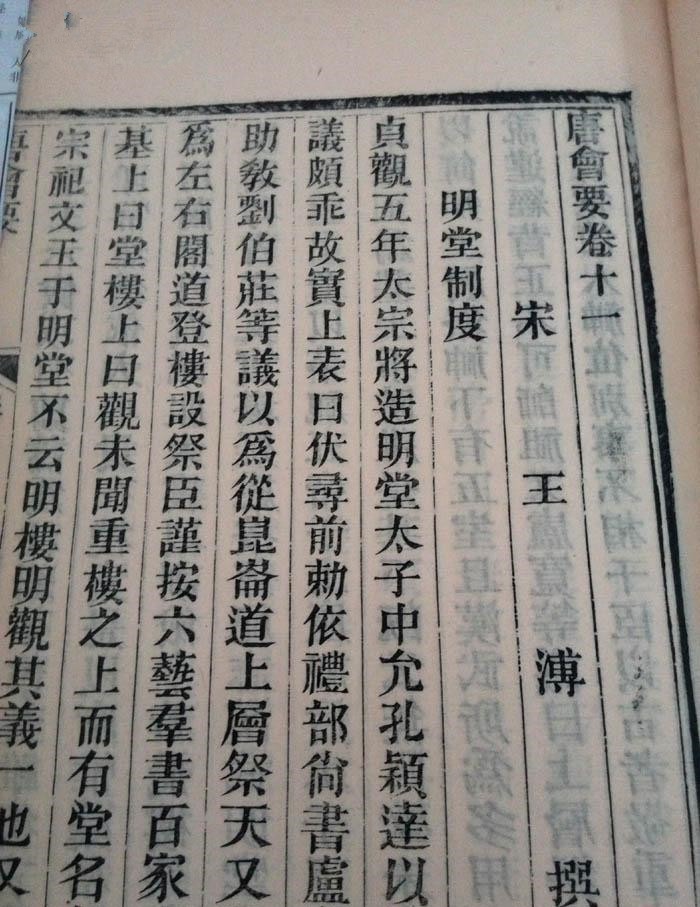 唐會要卷十一
宋 王 溥 撰
明堂制度
貞觀五年太宗將造明堂太子中允孔穎達以
議頗乖故實上表曰伏尋前勅依禮部尙書盧
助教劉伯莊等議以爲從崑崙道上層祭天又
爲左右閣道登樓設祭臣謹按六藝羣書百家
基上曰堂樓上曰觀未聞重樓之上而有堂名
宗祀文王于明堂不云明樓明觀其義一也又
唐會要